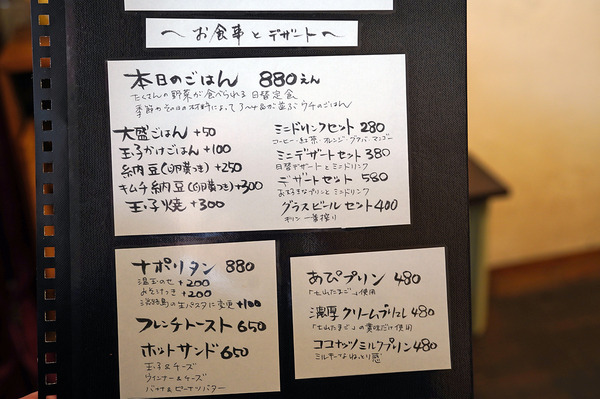 ～お食事とデザート～
本日のごはん 880えん
たくさんの野菜が食べられる 日替定食
大盛ごはん +50
玉子かけごはん +100
納豆(卵黄つき) +250
キムチ納豆(卵黄つき) +300
玉子焼 +300
ミニドリンクセット 280
コーヒー・紅茶・オレンジ・グァバ・マンゴー
ミニデザートセット 380
日替デザートとミニドリンク
デザートセット 580
お好きなプリンとミニドリンク
グラスビールセット 400
キリン一番搾り
ナポリタン 880
温玉のせ +200
+200
淡路島の生パスタに変更 +100
フレンチトースト 650
ホットサンド 650
玉子&チーズ
ウインナー&チーズ
バナナ&ピーナツバター
あぴプリン 480
「七山たまご」使用
濃厚クリームブリュレ 480
「七山たまご」の黄味だけ使用
ココナッツミルクプリン 480
ミルキーなねっとり感